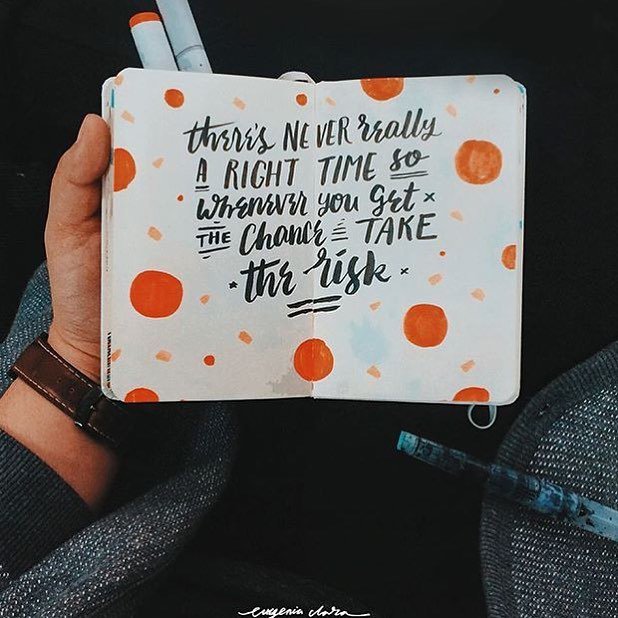 there's NEVER really
A RIGHT TIME so
whenever you get
THE chance TAKE
the risk
eugenia clara